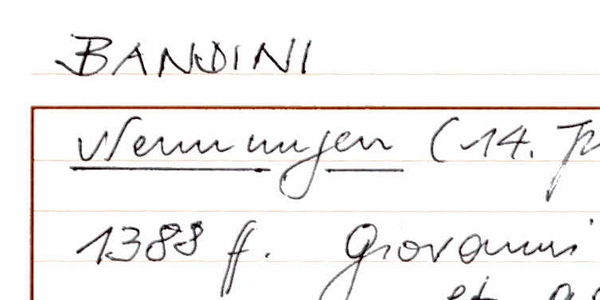 BANDINI
Nennungen (14. J
1383 ff. Giovanni
et